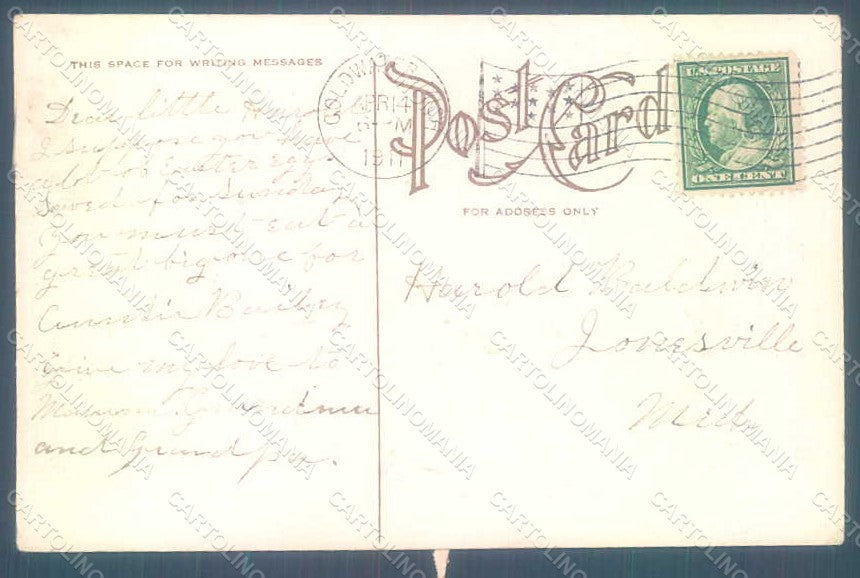 THIS SPACE FOR WRITING MESSAGES
Dear little Harold
I suppose you have
a lot of Easter eggs
saved for Sunday
You must eat a
great big one for
Auntie Bailey
Give my love to
Mamma Grandma
and Grandpa.
COLDWATER
APR 14
1911
Post Card
FOR ADDRESS ONLY
U.S. POSTAGE
ONE CENT
Harold Baldwin
Jonesville
Mich
CARTOLINOMANIA